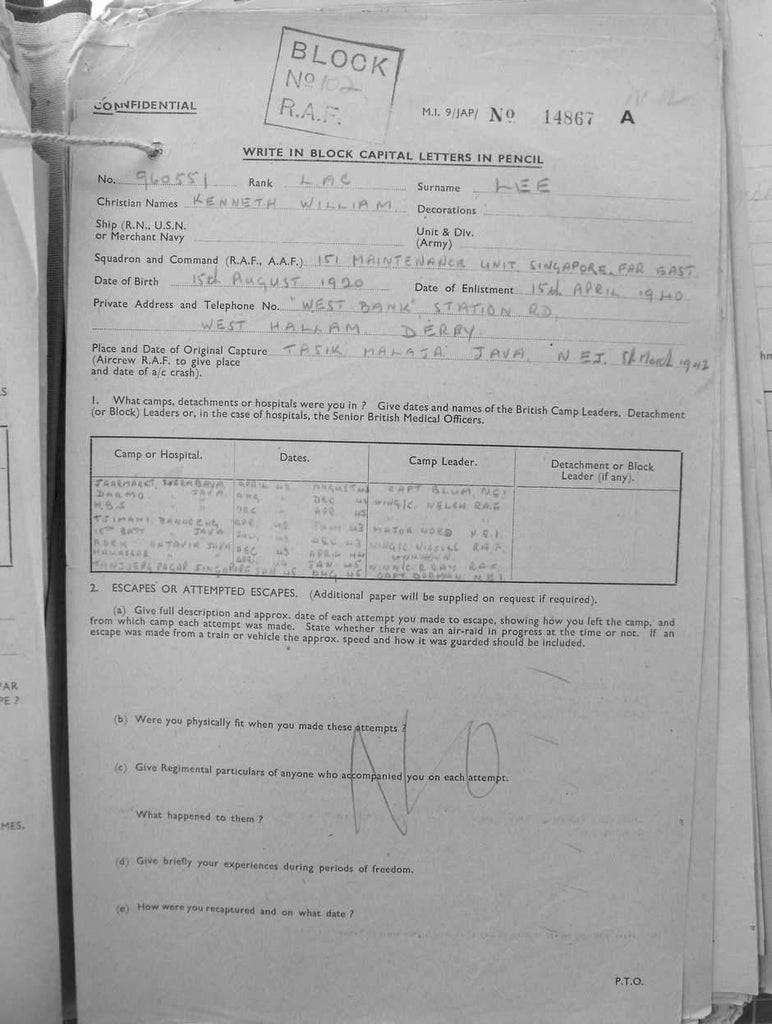 BLOCK
No 102
R.A.F.
CONFIDENTIAL
M.I. 9/JAP/ No 14867 A
WRITE IN BLOCK CAPITAL LETTERS IN PENCIL
No. 960551 Rank LAC Surname LEE
Christian Names KENNETH WILLIAM Decorations
Ship (R.N., U.S.N. or Merchant Navy Unit & Div. (Army)
Squadron and Command (R.A.F., A.A.F.) 151 MAINTENANCE UNIT, SINGAPORE, FAR EAST
Date of Birth 15th AUGUST 1920 Date of Enlistment 15th APRIL 1940
Private Address and Telephone No. "WEST BANK" STATION RD,
WEST HALLAM DERBY
Place and Date of Original Capture TASIK MALAJA JAVA, NEI. 8th March 1942
(Aircrew R.A.F. to give place
and date of a/c crash).
1. What camps, detachments or hospitals were you in ? Give dates and names of the British Camp Leaders, Detachment
(or Block) Leaders or, in the case of hospitals, the Senior British Medical Officers.
Camp or Hospital. Dates. Camp Leader. Detachment or Block Leader (if any).
JAARMARKT, SOERABAYA APRIL CAPT BLUM, NEI
DARMO JAVA AUG DEC WING/C. WELCH RAF
DEC APR
TJIMAHI, BANDOENG, APR. 43 MAJOR N.E.I.
JAVA 43 DEC 43 WING/C R.A.F.
BATAVIA JAVA DEC 43 APRIL 44 UNKNOWN
MAKASSAR APR. 44 JAN. 45 WING/C R.A.F.
TANJOENG PAGAR SINGAPORE JAN 45 AUG 45 CAPT N.E.I.
2. ESCAPES OR ATTEMPTED ESCAPES. (Additional paper will be supplied on request if required).
(a) Give full description and approx. date of each attempt you made to escape, showing how you left the camp, and
from which camp each attempt was made. State whether there was an air-raid in progress at the time or not. If an
escape was made from a train or vehicle the approx. speed and how it was guarded should be included.
(b) Were you physically fit when you made these attempts ?
NO
(c) Give Regimental particulars of anyone who accompanied you on each attempt.
What happened to them ?
(d) Give briefly your experiences during periods of freedom.
(e) How were you recaptured and on what date ?
P.T.O.